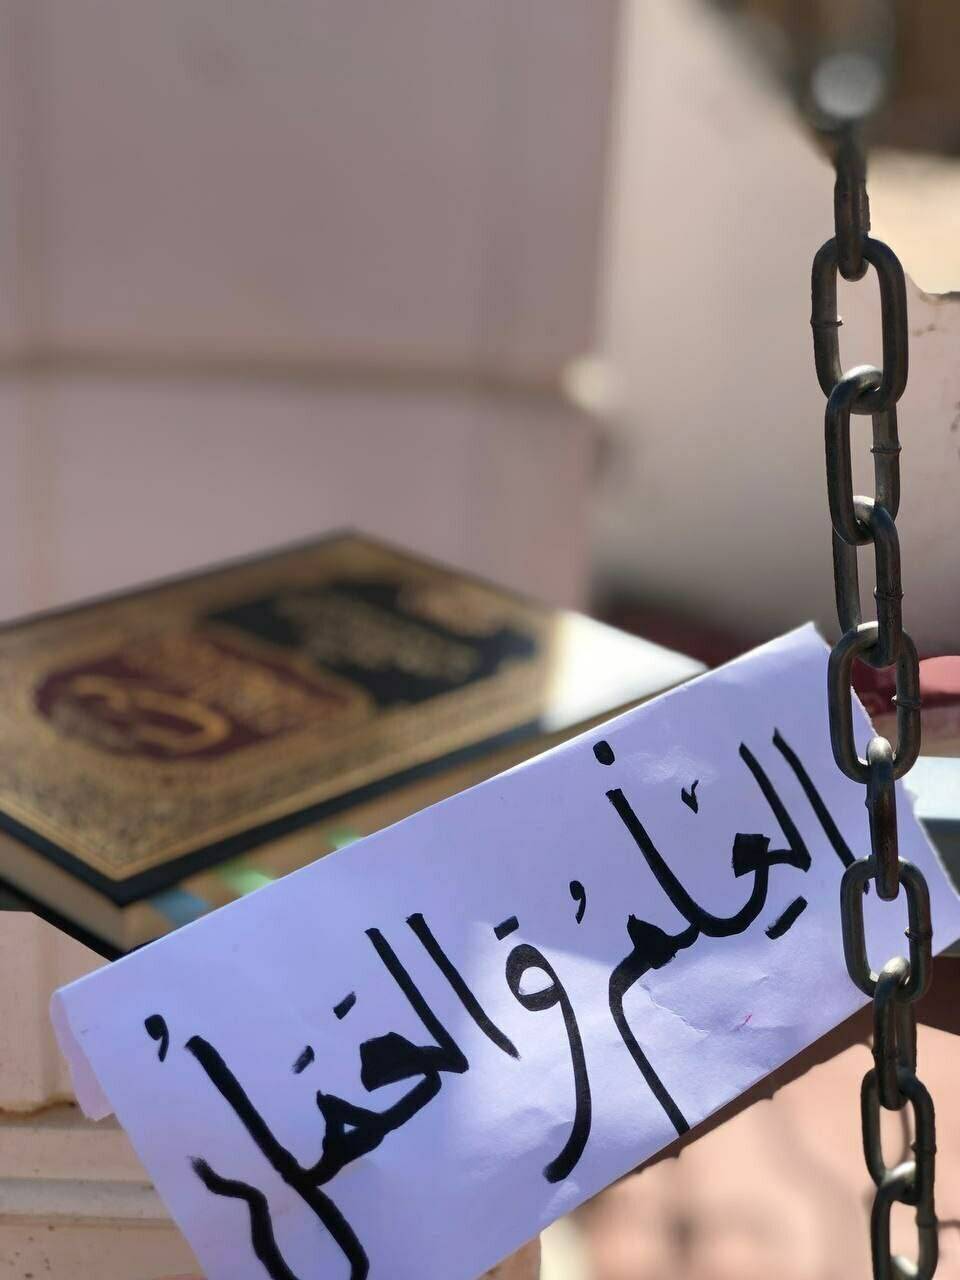 العِلْمُ وَالعَمَلُ